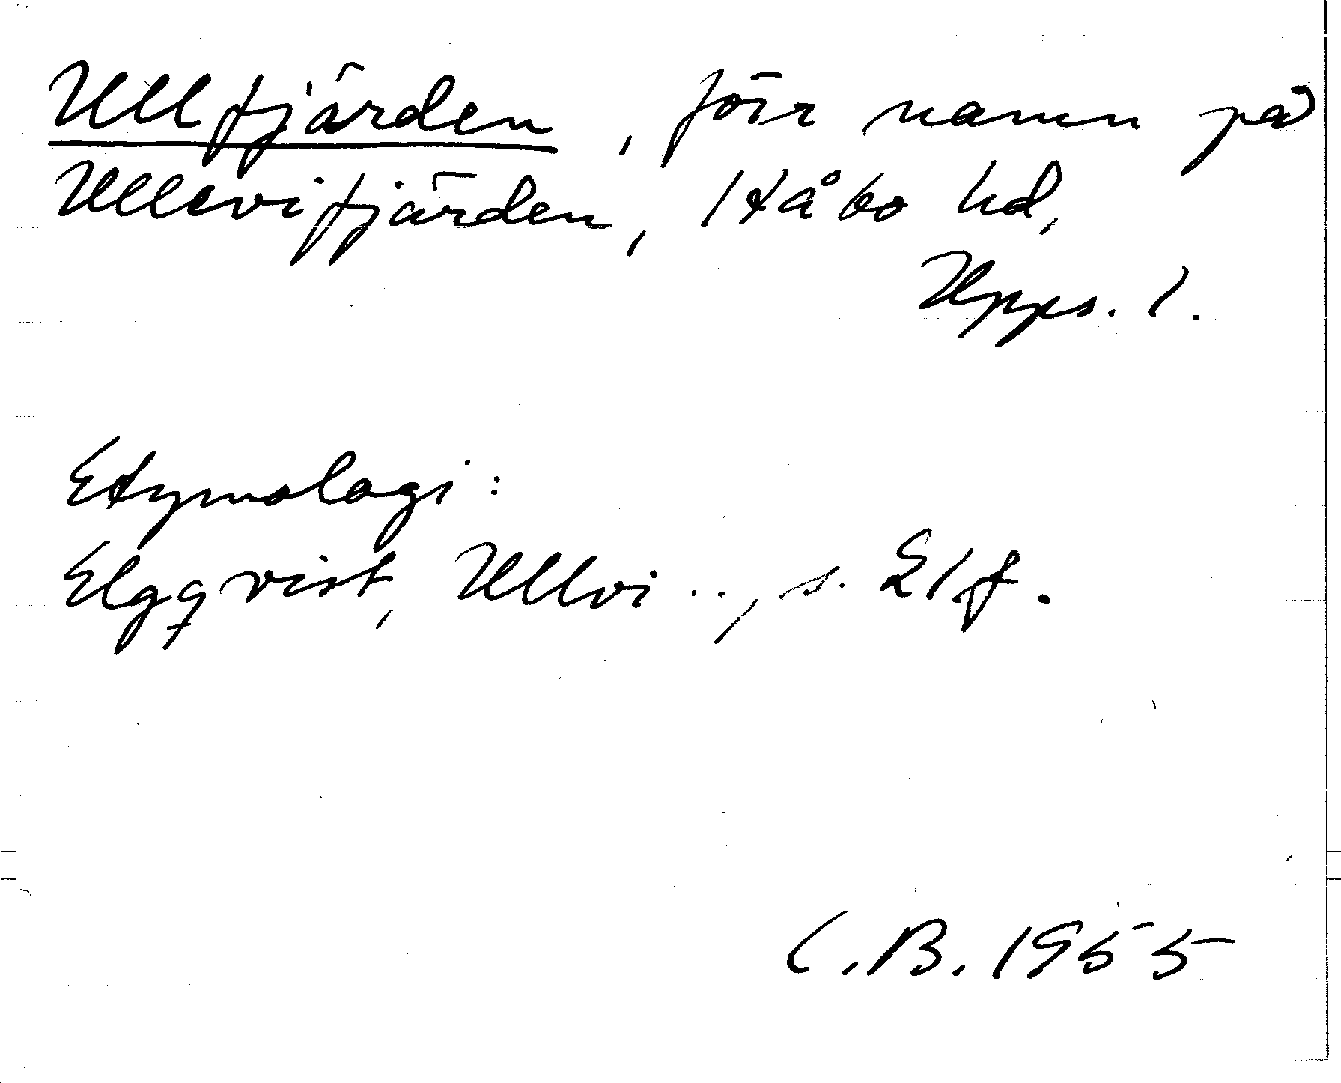 Ullfjärden, förr namn på
Ullevifjärden, Håbo hd,
Upps. l.
Etymologi:
Elgqvist, Ullvi .., s. 21f.
C.B. 1955